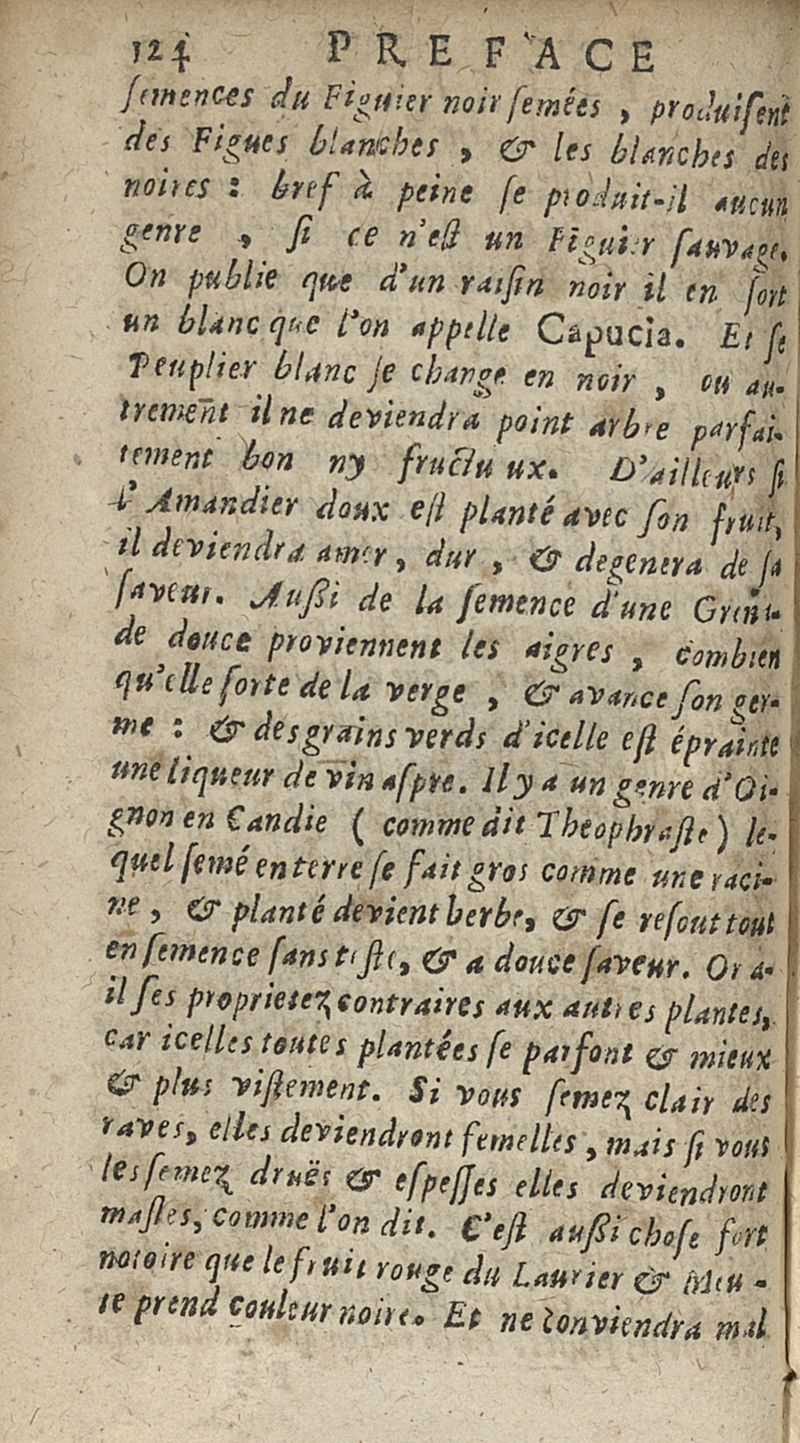 124 PREFACE
ſemences du Figuier noir ſemées , produiſent
des Figues blanches , & les blanches des
noires : bref à peine ſe produit-il aucun
genre , ſi ce n'eſt un Figuier ſauvage.
On publie que d'un raiſin noir il en ſort
un blanc que l'on appelle Capucia. Et ſe
Peuplier blanc ſe change en noir , ou au-
trement il ne deviendra point arbre parfai-
tement bon ny fructu ux. D'ailleurs ſi
l'Amandier doux eſt planté avec ſon fruit,
il deviendra amer, dur , & degenera de ſa
ſaveur. Auſſi de la ſemence d'une Grena-
de douce proviennent les aigres , combien
qu'elle ſorte de la verge , & avance ſon ger-
me : & des grains verds d'icelle eſt éprainte
une liqueur de vin aſpre. Il y a un genre d'Oi-
gnon en Candie ( comme dit Theophraſte) le-
quel ſemé en terre ſe fait gros comme une raci-
ne , & planté devient herbe, & ſe reſout tout
en ſemence ſans teſte, & a douce ſaveur. Or a-
il ſes proprietez contraires aux autres plantes,
car icelles toutes plantées ſe parfont & mieux
& plus viſtement. Si vous ſemez clair des
raves, elles deviendront femelles , mais ſi vous
les ſemez druës & eſpeſſes elles deviendront
maſles, comme l'on dit. C'eſt auſſi choſe fort
notoire que le fruit rouge du Laurier & Meu-
te prend couleur noire. Et ne conviendra mal